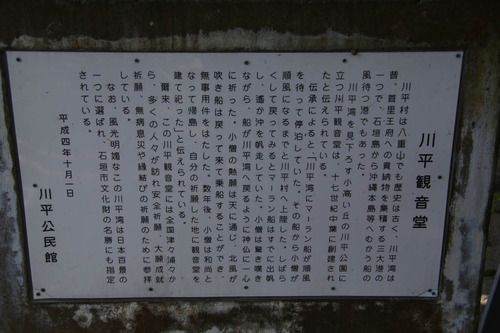 川平観音堂
川平村は八重山でも歴史は古く、川平湾は
昔、首里王府への貢納物を集積する三大港の
一つで、石垣島から沖縄本島等へむかう船の
風待つ港でもあった。
川平湾を見下ろす小高い丘の川平公園に
立つ川平観音堂は、十七世紀中葉に創建され
たと伝えられている。
伝承によると「川平湾にマーラン船が順風
を待って停泊していた。その船から小僧が
順風になるまでと川平村へ上陸した。しばら
くして戻ってみるとマーラン船はすでに出帆
し、遙か沖を帆走していた。小僧は驚き嘆き
ながら、船が川平湾へ戻るように神仏に一心
に祈った。小僧の熱願は天に通じ、北風が
吹き船は戻って来て乗船することができ、
無事用件をはたした。数年後、小僧は和尚と
なって帰島し、自分の祈願した地に観音堂を
建て祀った」と伝えられている。
爾来、この川平観音堂には全国津々浦々か
ら、多くの人々が訪れ安全祈願、大願成就
祈願、無病息災や縁結びの祈願のために参拝
している。
なお、風光明媚なこの川平湾は日本百景の
一つに選ばれ、石垣市文化財の名勝にも指定
されている。
平成四年十月一日
川平公民館